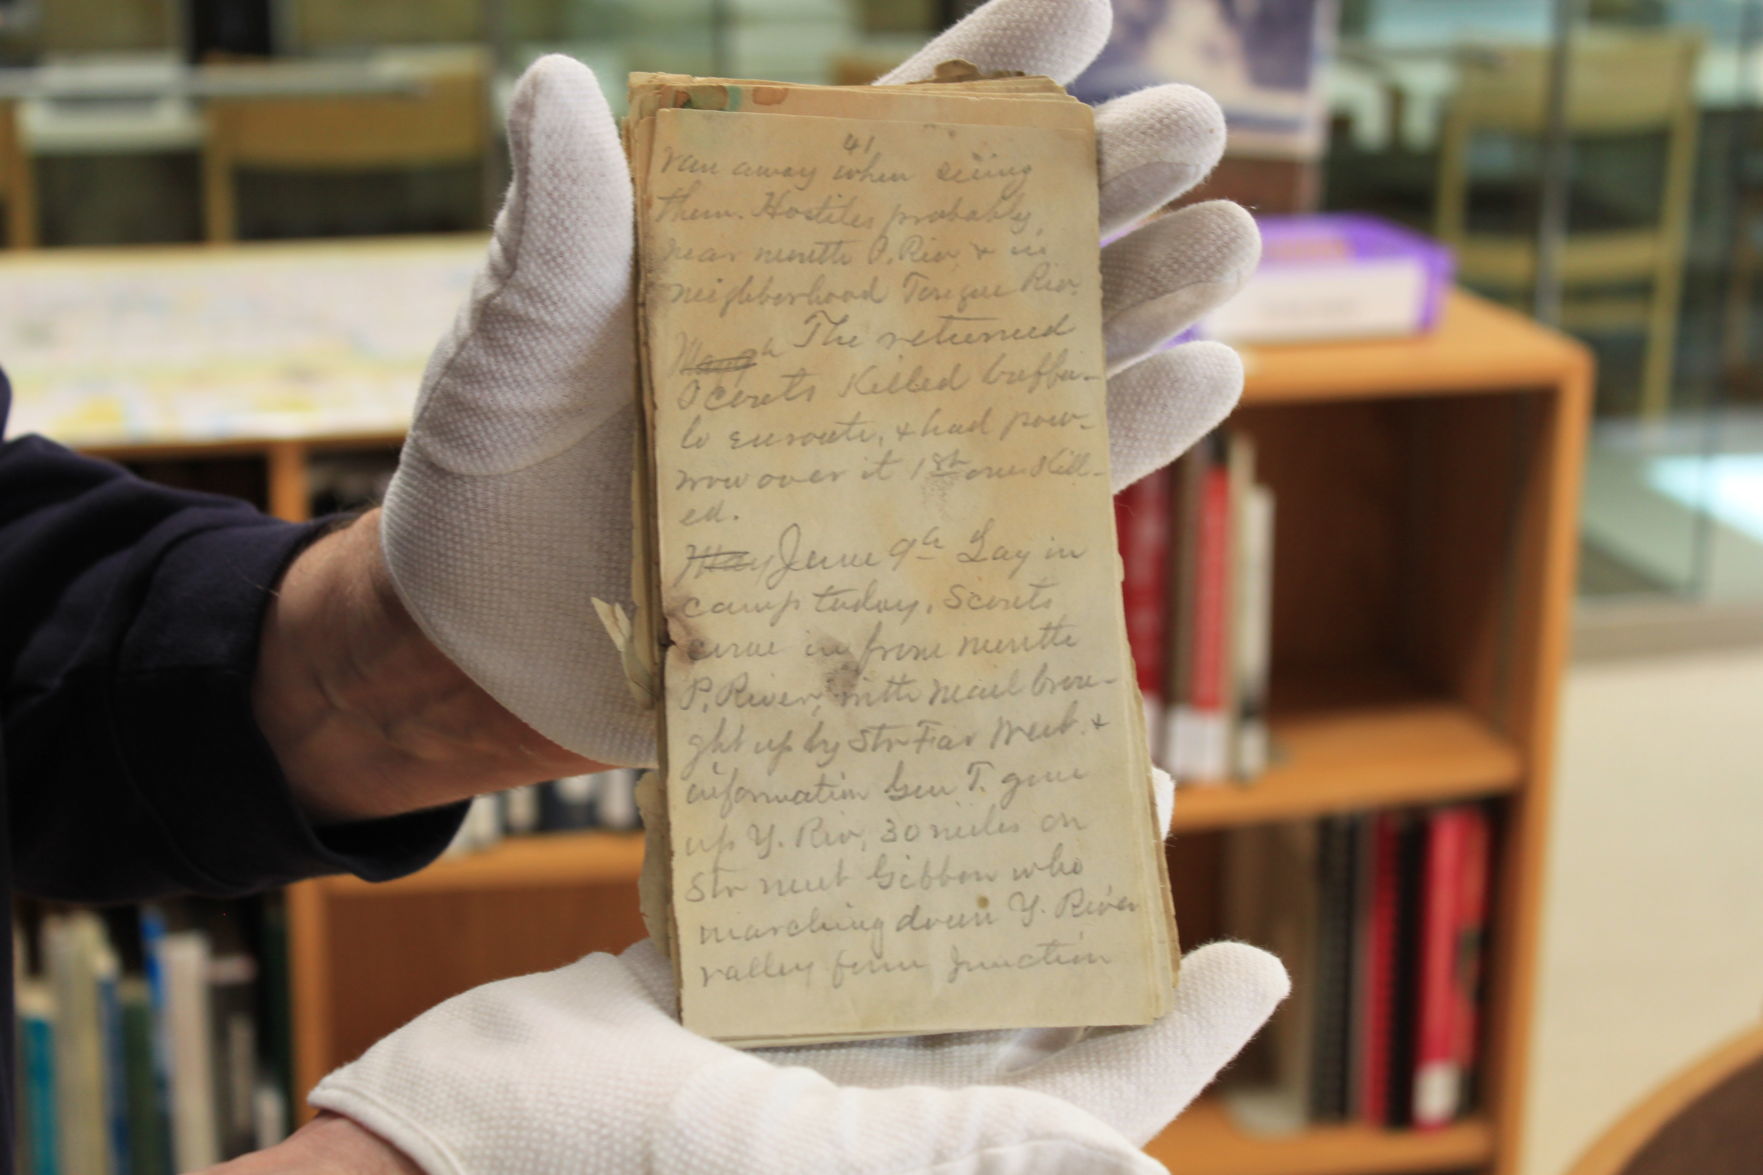 41
ran away when seeing
them. Hostiles probably
near mouth P. Riv, & in
neighborhood Tongue Riv.
The returned
Scouts Killed buffa-
lo enroute, & had pow-
wow over it 1st one Kill-
ed.
May June 9th Lay in
camp today. Scouts
came in from mouth
P. River, with mail brou-
ght up by Str Far West. &
information Gen T. gone
up Y. Riv, 30 miles on
Str meet Gibbon who
marching down Y. River
valley form junction